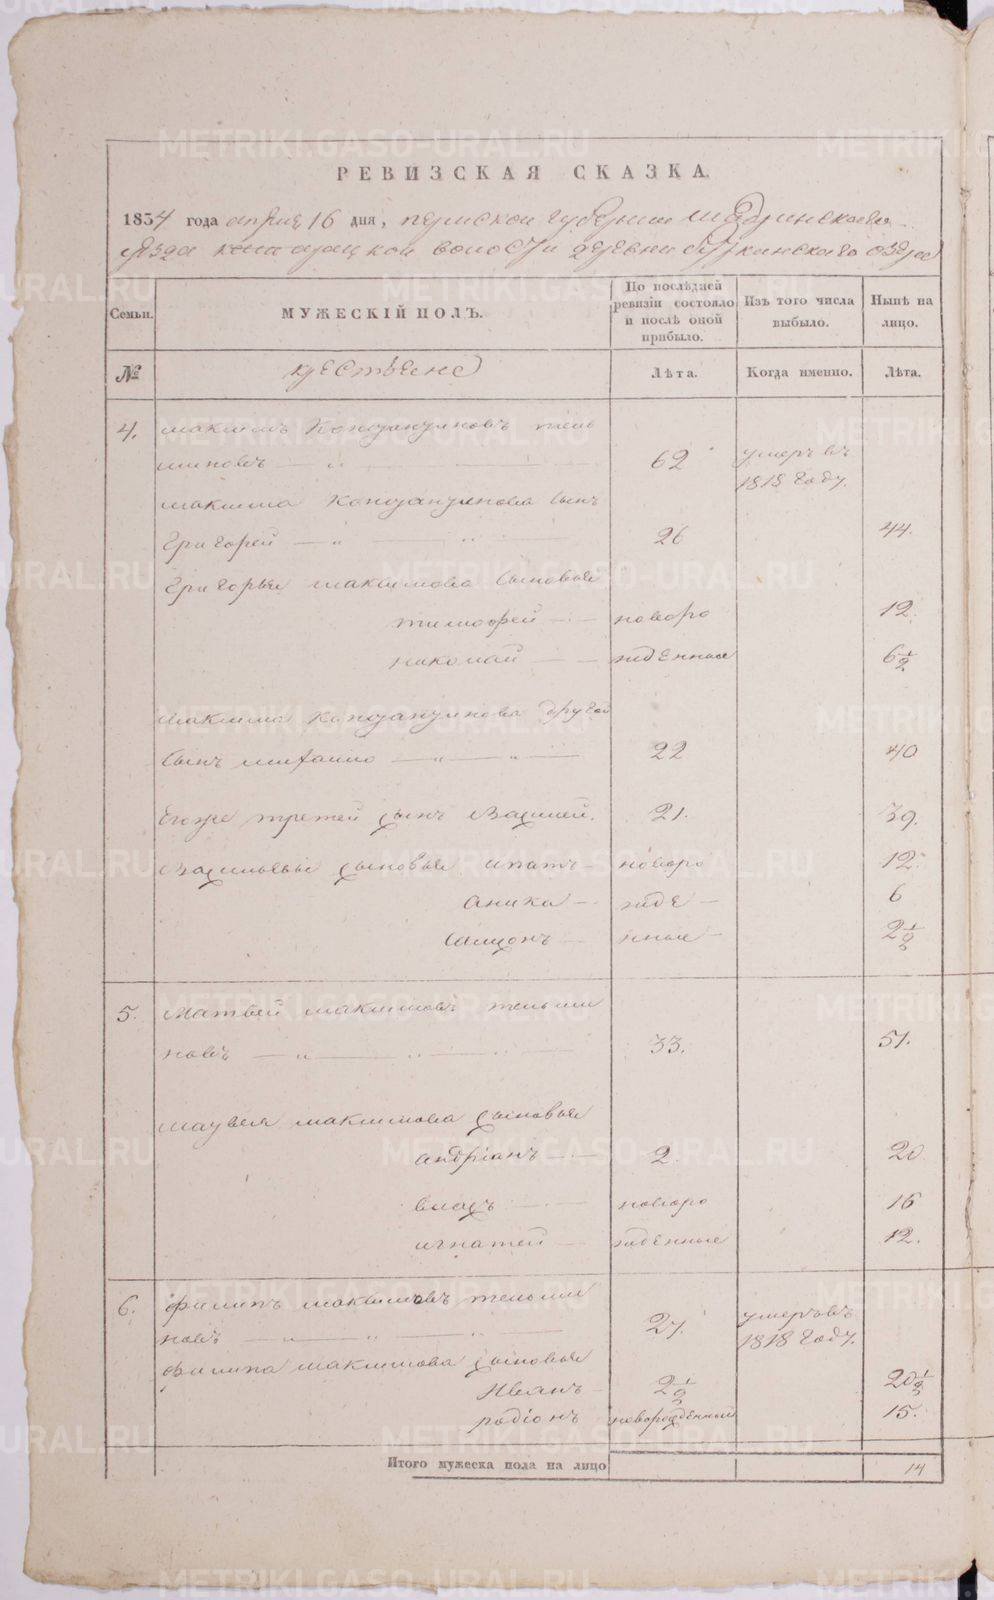 РЕВИЗСКАЯ СКАЗКА.
1834 года апреля 16 дня, пермской губернии Шадринскаго
уезда волости деревни озера
Семьи.
МУЖЕСКІЙ ПОЛЪ.
По послѣдней ревизіи состояло и послѣ оной прибыло.
Изъ того числа выбыло.
Нынѣ на лицо.
№
крестьяне
Лѣта.
Когда именно.
Лѣта.
4. максимъ Констянтиновъ тень
миновъ — 62 умеръ въ
1818 году.
максима констянтинова сынъ
григорей — 26 44.
григорья максимова сыновья
тимофей — новоро 12.
николай — жденные 6½
максима констянтинова другой
сынъ михаило — 22 40
егоже третей сынъ василей. 21. 39.
васильевы сыновья ипатъ — новоро 12.
аника — жде — 6
самсонъ — нные — 2½
5. Матвей максимовъ теньми
новъ — 33. 51.
матвея максимова сыновья
андріанъ — 2. 20
власъ — новоро 16
игнатей — жденные 12.
6. филипъ максимовъ теньми
новъ — 27. умеръ въ
1818 году.
филипа максимова сыновья
Иванъ — 2½ 20½
родіонъ новорожденный 15.
Итого мужеска пола на лицо 14
METRIKI.GASO-URAL.RU